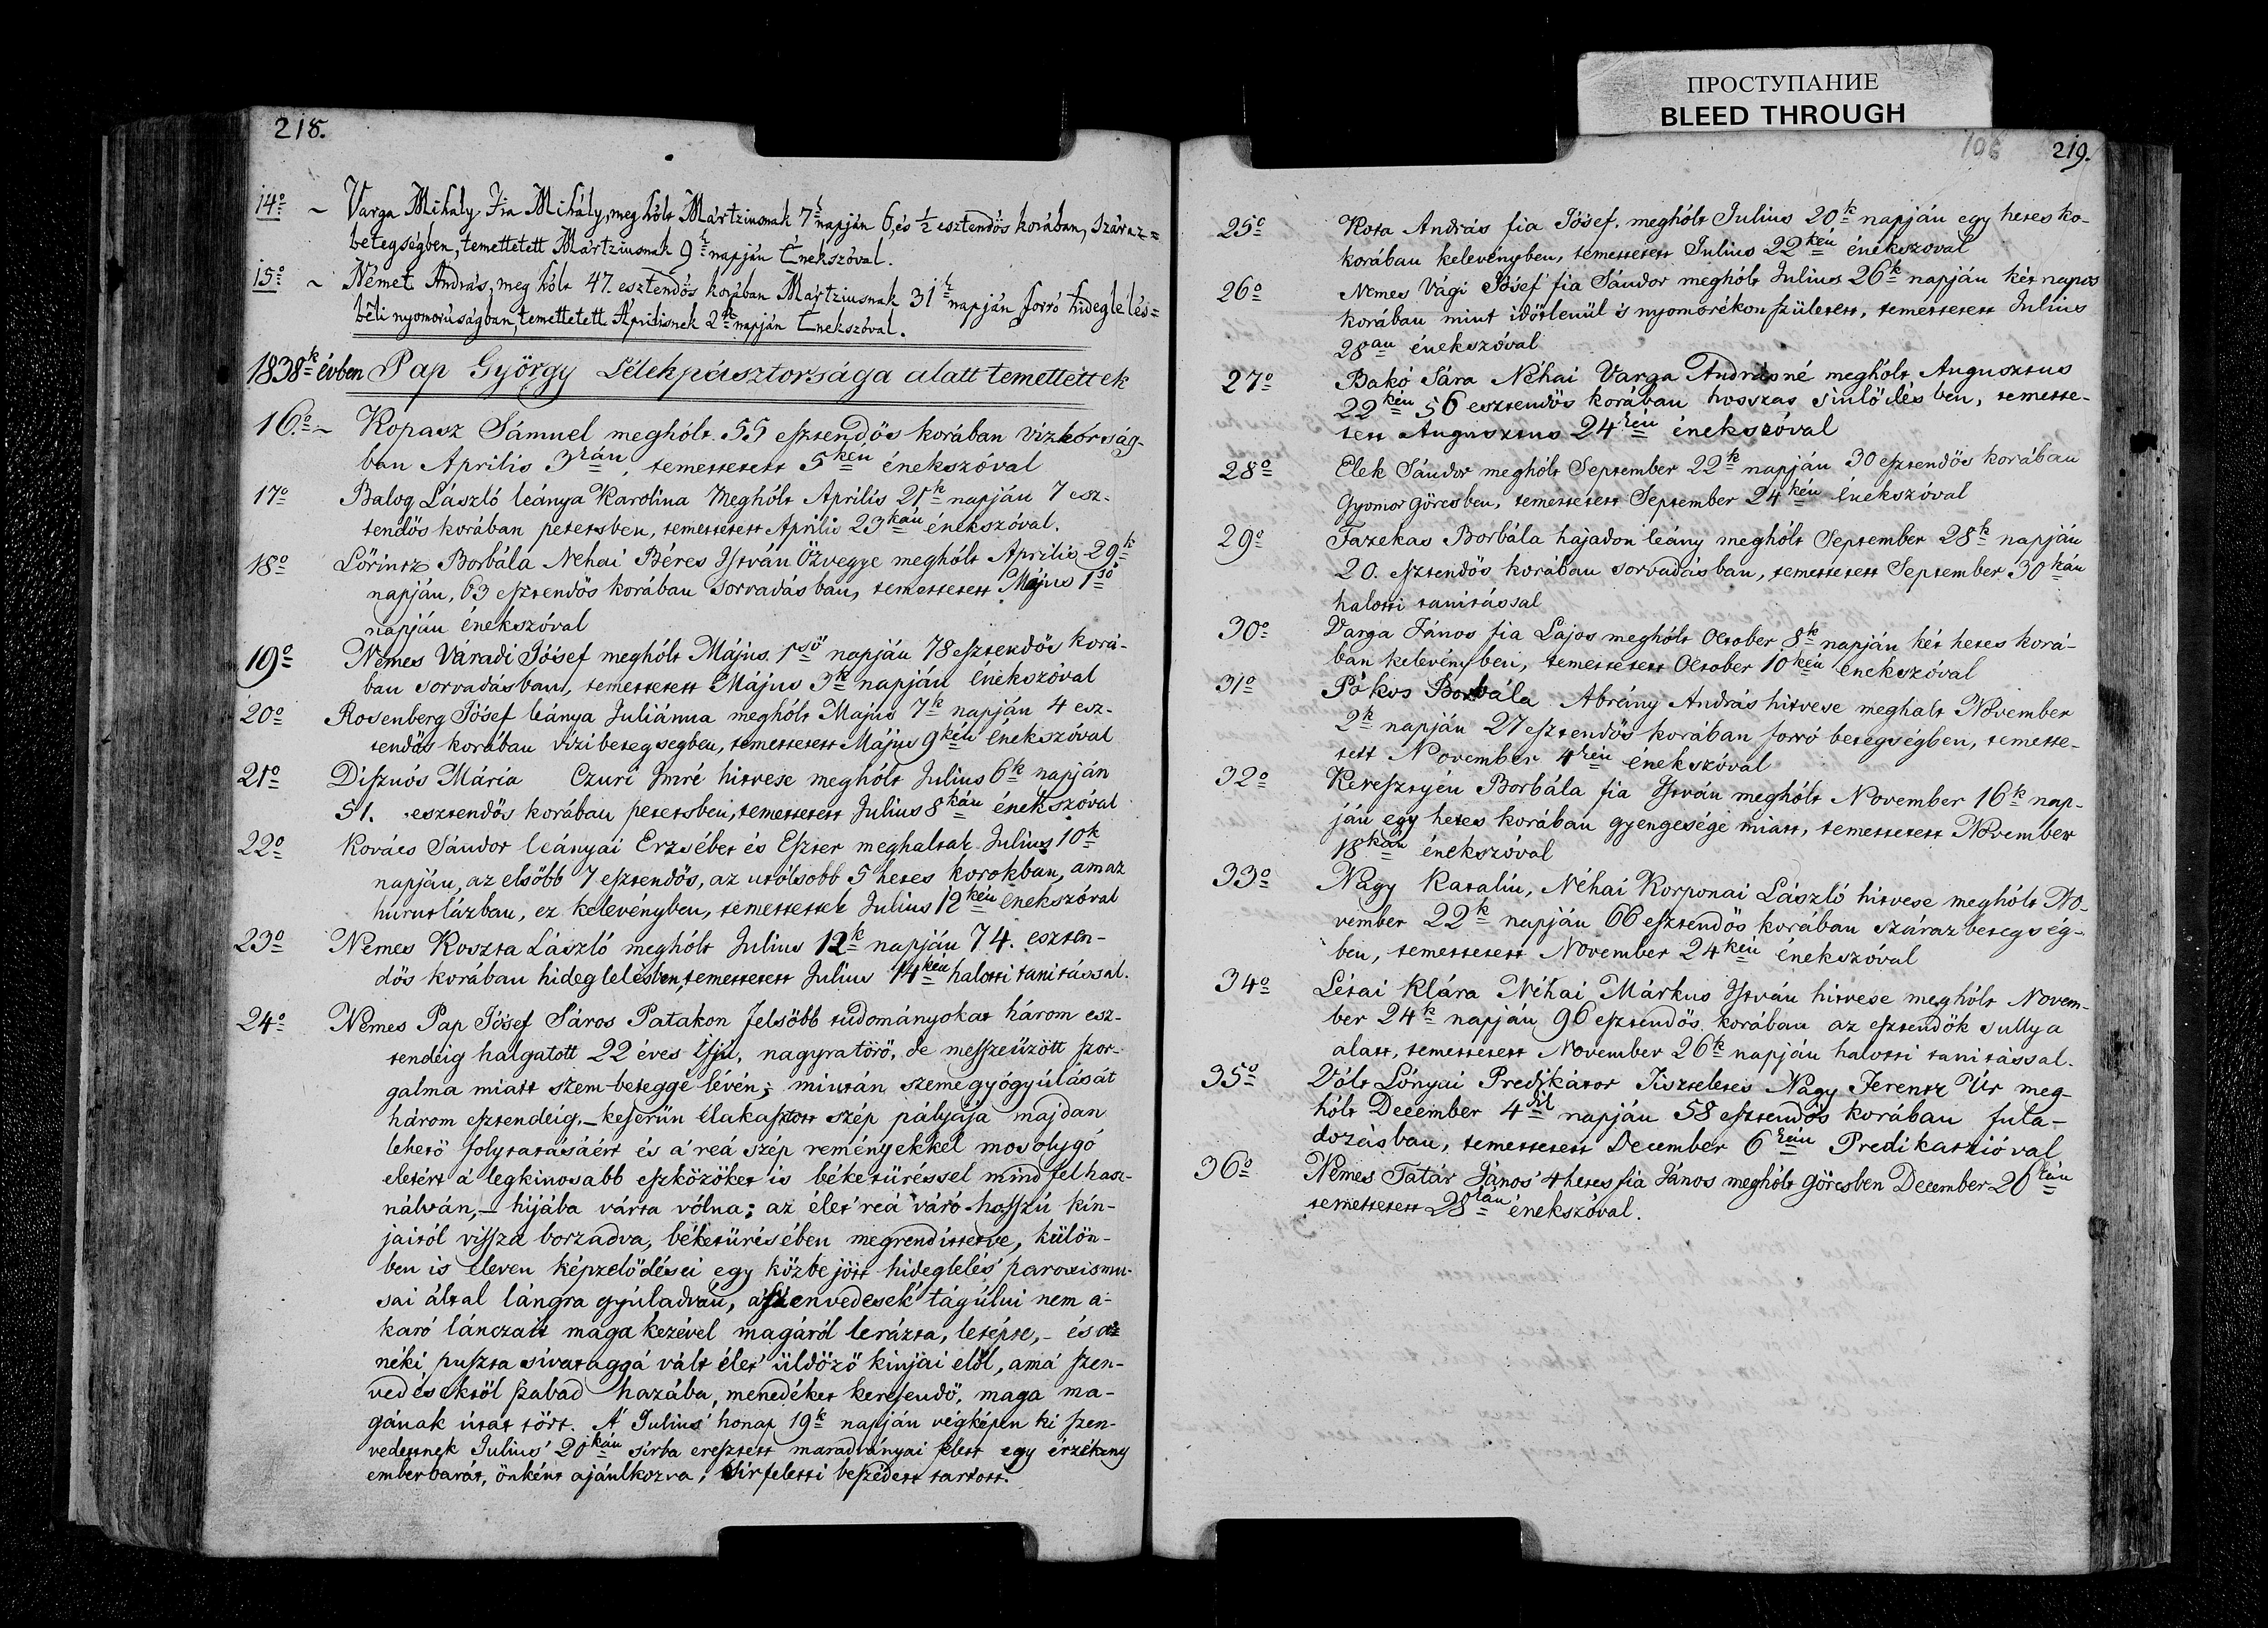 ПРОСТУПАНИЕ
BLEED THROUGH
218.
14º ~ Varga Mihály Fia Mihály, meg hólt Mártziusnak 7k napján 6, és ½ esztendős korában, száraz=
betegségben, temettetett Mártziusnak 9k napján Énekszóval.
15º ~ Német András, meg hólt 47. esztendős korában Mártziusnak 31k napján forró hideglelés=
béli nyomorúságban, temettetett Áprilisnek 2k napján Énekszóval.
1838k évben Pap György Lélekpásztorsága alatt temettettek
16.º ~ Kopasz Sámuel meghólt 55 esztendős korában vizkórság-
ban Aprilis 3rán, temettetett 5kén énekszóval
17º Balog László leánya Karolina Meghólt Aprilis 21k napján 7 esz-
tendős korában petetsben, temettetett Aprilis 23kán énekszóval.
18º Lőrintz Borbála Nehai Béres István Özvegye meghólt Aprilis 29k
napján, 63 esztendős korában sorvadásban, temettetett Május 1ső
napján énekszóval
19º Nemes Váradi Jósef meghólt Május 1ső napján 78 esztendős korá-
ban sorvadásban, temettetett Május 3k napján énekszóval
20º Rosenberg Jósef leánya Juliánna meghólt Május 7k napján 4 esz-
tendős korában vizibetegségben, temettetett Május 9kén énekszóval
21º Disznós Mária Czuri Imré hitvese meghólt Julius 6k napján
51. esztendős korában petetsben, temettetett Julius 8kán énekszóval
22º Kovács Sándor leányai Erzsébet és Eszter meghaltak Julius 10k
napján, az elsőbb 7 esztendős, az utólsobb 5 hetes korokban, amaz
hurutlázban, ez kelevényben, temettettek Julius 12kén énekszóval
23º Nemes Koszta László meghólt Julius 12k napján 74. eszten-
dős korában hideglelésben, temettetett Julius 14kén halotti tanitással.
24º Nemes Pap Jósef Sáros Patakon felsőbb tudományokat három esz-
tendeig halgatott 22 éves ifjú, nagyratörő, de messzeűzött szor-
galma miatt szem-beteggé lévén; miután szeme gyógyúlását
három esztendeig, – keserűn élakasztott szép pályája majdan
lehető folytatásáért és a' reá szép reményekkel mosolygó
eletért a' legkinosabb eszközöket is béketűréssel mind felhasz-
nálván, – hijába várta vólna; az élet' reá váró hosszú kín-
jaitól vissza borzadva, béketűrésében megrendíttetve, külön-
ben is eleven képzelődései egy közbe jött hideglelés' paroxismu-
sai által lángra gyúladván, a' szenvedések tágúlni nem a-
karó lánczait maga kezével magáról lerázta, letépte, – és az
néki puszta sivataggá vált élet' üldöző kinjai elől, ama' szen-
vedésektől szabad hazába, menedéket keresendő, maga ma-
gának útat tört. A' Julius' honap 19k napján végképen ki szen-
vedettnek Julius' 20kán sirba eresztett maradványai felett egy érzékeny
emberbarát, önként ajánlkozva, sirfeletti beszédet tartott.
106 219.
25º Kota András fia Jósef. meghólt Julius 20k napján egy hetes ko-
korában kelevényben, temettetett Julius 22kén énekszoval
26º Nemes Vági Jósef fia Sándor meghólt Julius 26k napján két napos
korában mint időtlenül és nyomorékon született, temettetett Julius
28án énekszóval
27º Bakó Sára Néhai Varga Andrásné meghólt Augusztus
22kén 56 esztendős korában hosszas sinlődésben, temette-
tett Augusztus 24kén énekszóval
28º Elek Sándor meghólt September 22k napján 30 esztendős korában
Gyomor görcsben, temettetett September 24kén énekszóval
29º Fazekas Borbála hajadon leány meghólt September 28k napján
20. esztendős korában sorvadásban, temettetett September 30kán
halotti tanitással
30º Varga János fia Lajos meghólt October 8k napján két hetes korá-
ban kelevényben, temettetett October 10kén énekszóval
31º Pókos Borbála Abrány András hitvese meghalt November
2k napján 27 esztendős korában forró betegségben, temette-
tett November 4kén énekszóval
32º Keresztyén Borbála fia István meghólt November 16k nap-
ján egy hetes korában gyengesége miatt, temettetett November
18kán énekszóval
33º Nagy Katalin, Néhai Korponai László hitvese meghólt No-
vember 22k napján 66 esztendős korában száraz betegség-
ben, temettetett November 24kén énekszóval
34º Létai Klára Néhai Márkus István hitvese meghólt Novem-
ber 24k napján 96 esztendős korában az esztendők sullya
alatt, temettetett November 26k napján halotti tanitással.
35º Vólt Lónyai Predikátor Tiszteletes Nagy Ferentz Úr meg-
hólt December 4dik napján 58 esztendős korában fula-
dozásban, temettetett December 6kán Predikatzióval
36º Nemes Tatár János' 4 hetes fia János meghólt görcsben December 26kán
temettetett 28kán énekszóval.